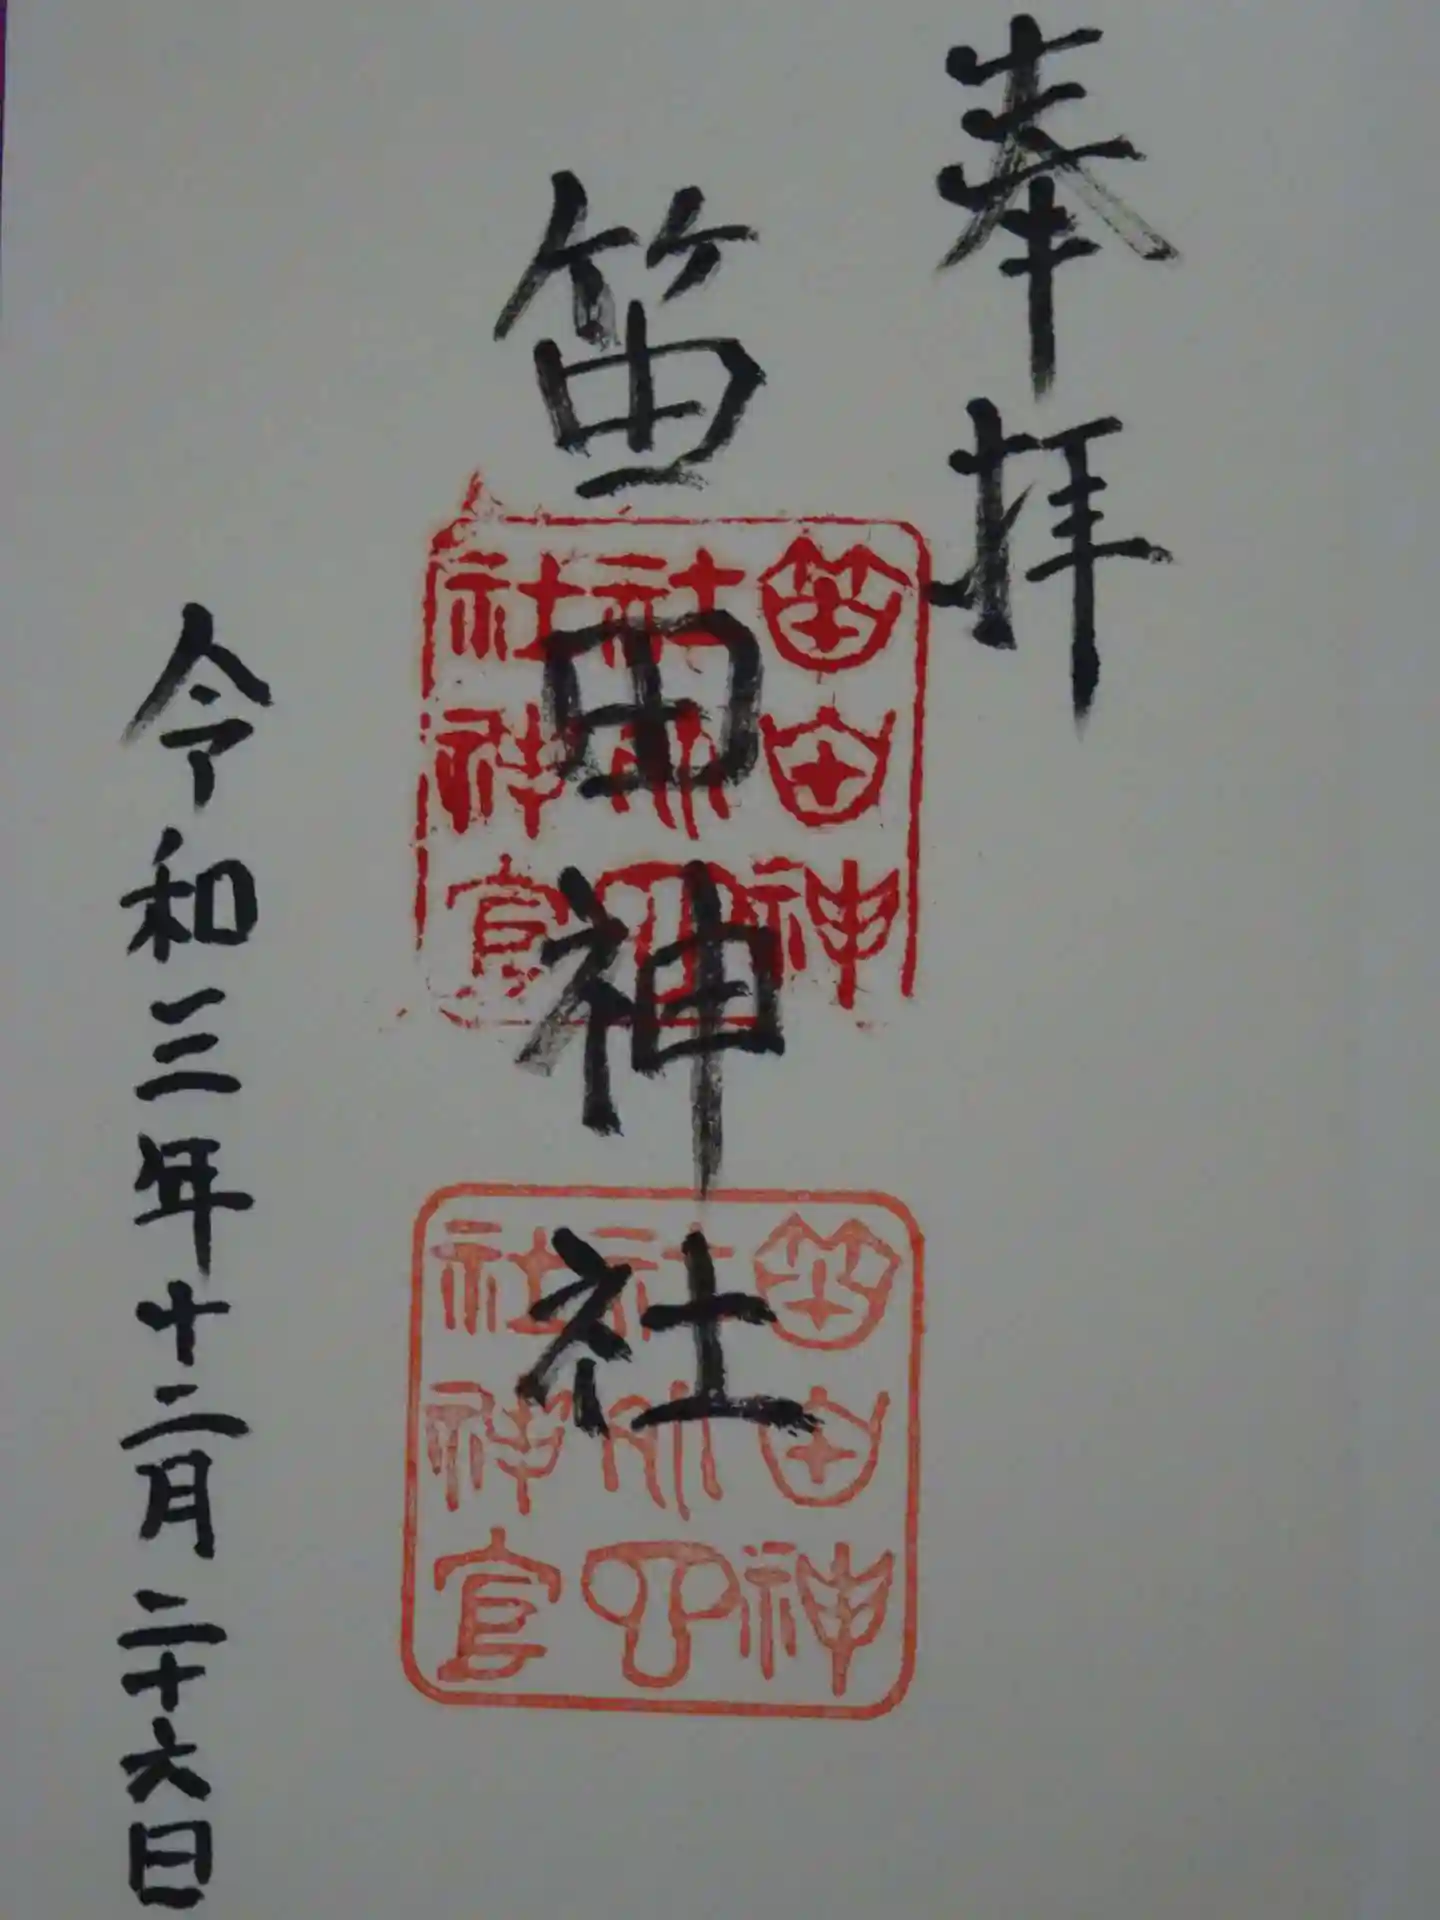 奉拝
笛田神社
令和三年十二月二十六日
笛田神
社神官
笛田神
社神官